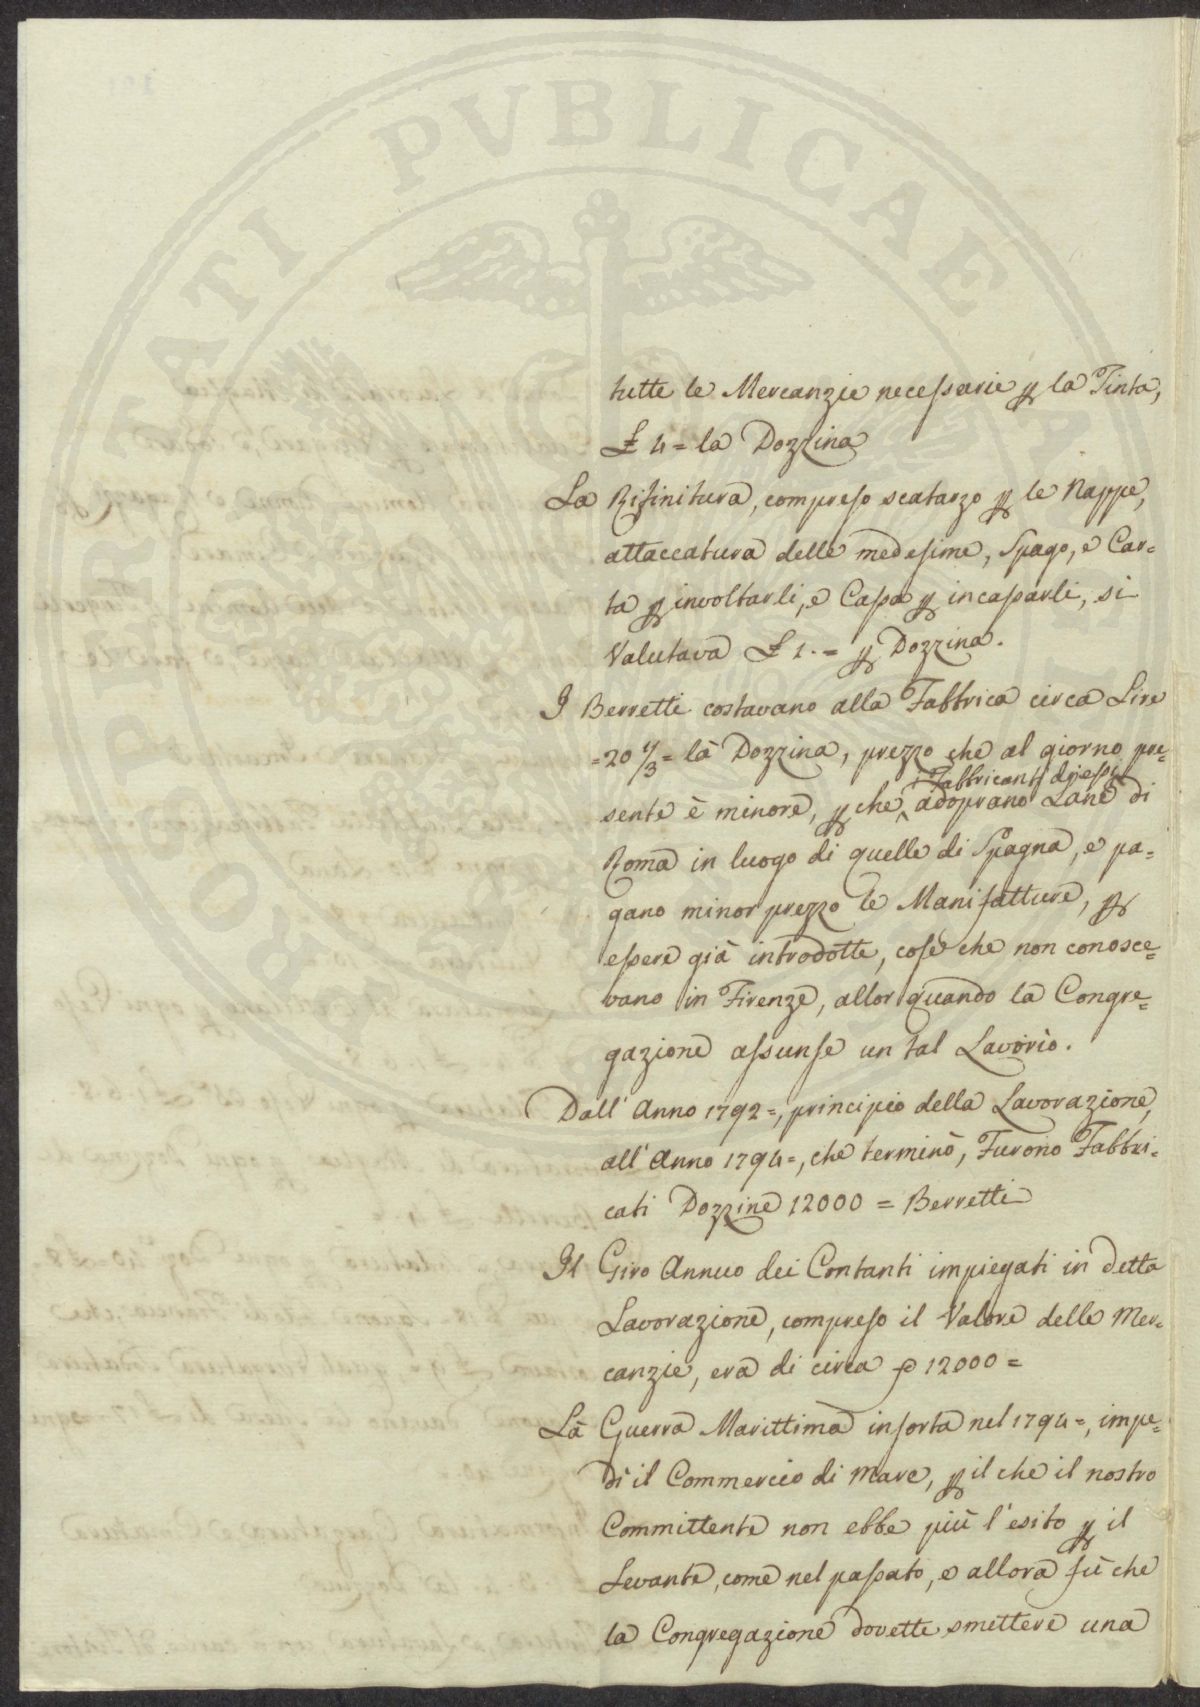 tutte le Mercanzie necessarie p la Tinta,
£ 4= la Dozzina
La Rifinitura, compreso scatarzo p le Nappe,
attaccatura delle medesime, Spago, e Car=
ta p involtarli, e Cassa p incassarli, si
Valutava £ 1.= p Dozzina.
I Berretti costavano alla Fabbrica circa Lire
=20 1/3= la Dozzina, prezzo che al giorno pre=
i Fabbricanti d'essi
sente è minore, p che adoprano Lane di
Roma in luogo di quelle di Spagna, e pa=
gano minor prezzo le Manifatture, p
essere già introdotte, cose che non conosce=
vano in Firenze, allor quando la Congre=
gazione assunse un tal Lavorio.
Dall' Anno 1792=, principio della Lavorazione,
all' Anno 1794=, che terminò, Furono Fabbri=
cati Dozzine 12000 = Berretti
Il Giro Annuo dei Contanti impiegati in detta
Lavorazione, compreso il Valore delle Mer=
canzie, era di circa 12000=
La Guerra Marittima insorta nel 1794=, impe=
dì il Commercio di Mare, p il che il nostro
Committente non ebbe più l'esito p il
Levante, come nel passato, e allora fù che
la Congregazione dovette smettere una
PVBLICAE